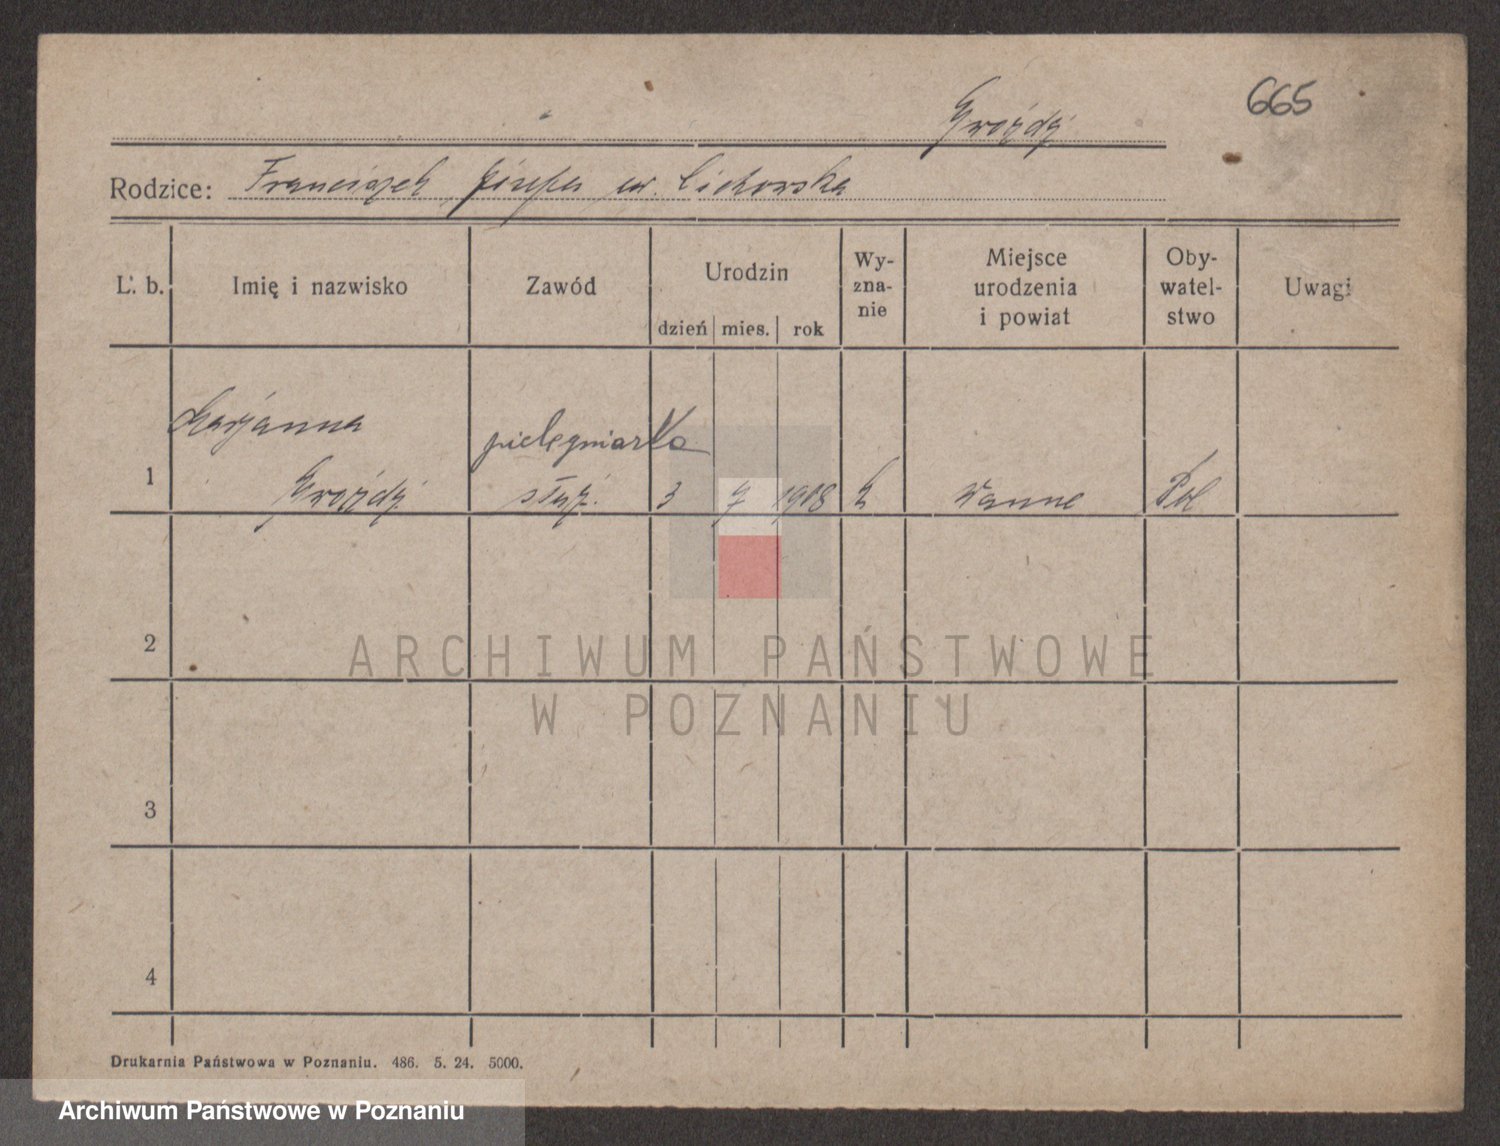 665
Gwoźdź
Rodzice: Franciszek Józefa ur. Cichowska
L. b. Imię i nazwisko Zawód Urodzin dzień mies. rok Wy-zna-nie Miejsce urodzenia i powiat Oby-watel-stwo Uwagi
Marjanna pielęgniarka
1 Gwoźdź służ. 3 7 1908 k Wanne Pol
2
ARCHIWUM PAŃSTWOWE
W POZNANIU
3
4
Drukarnia Państwowa w Poznaniu. 486. 5. 24. 5000.
Archiwum Państwowe w Poznaniu